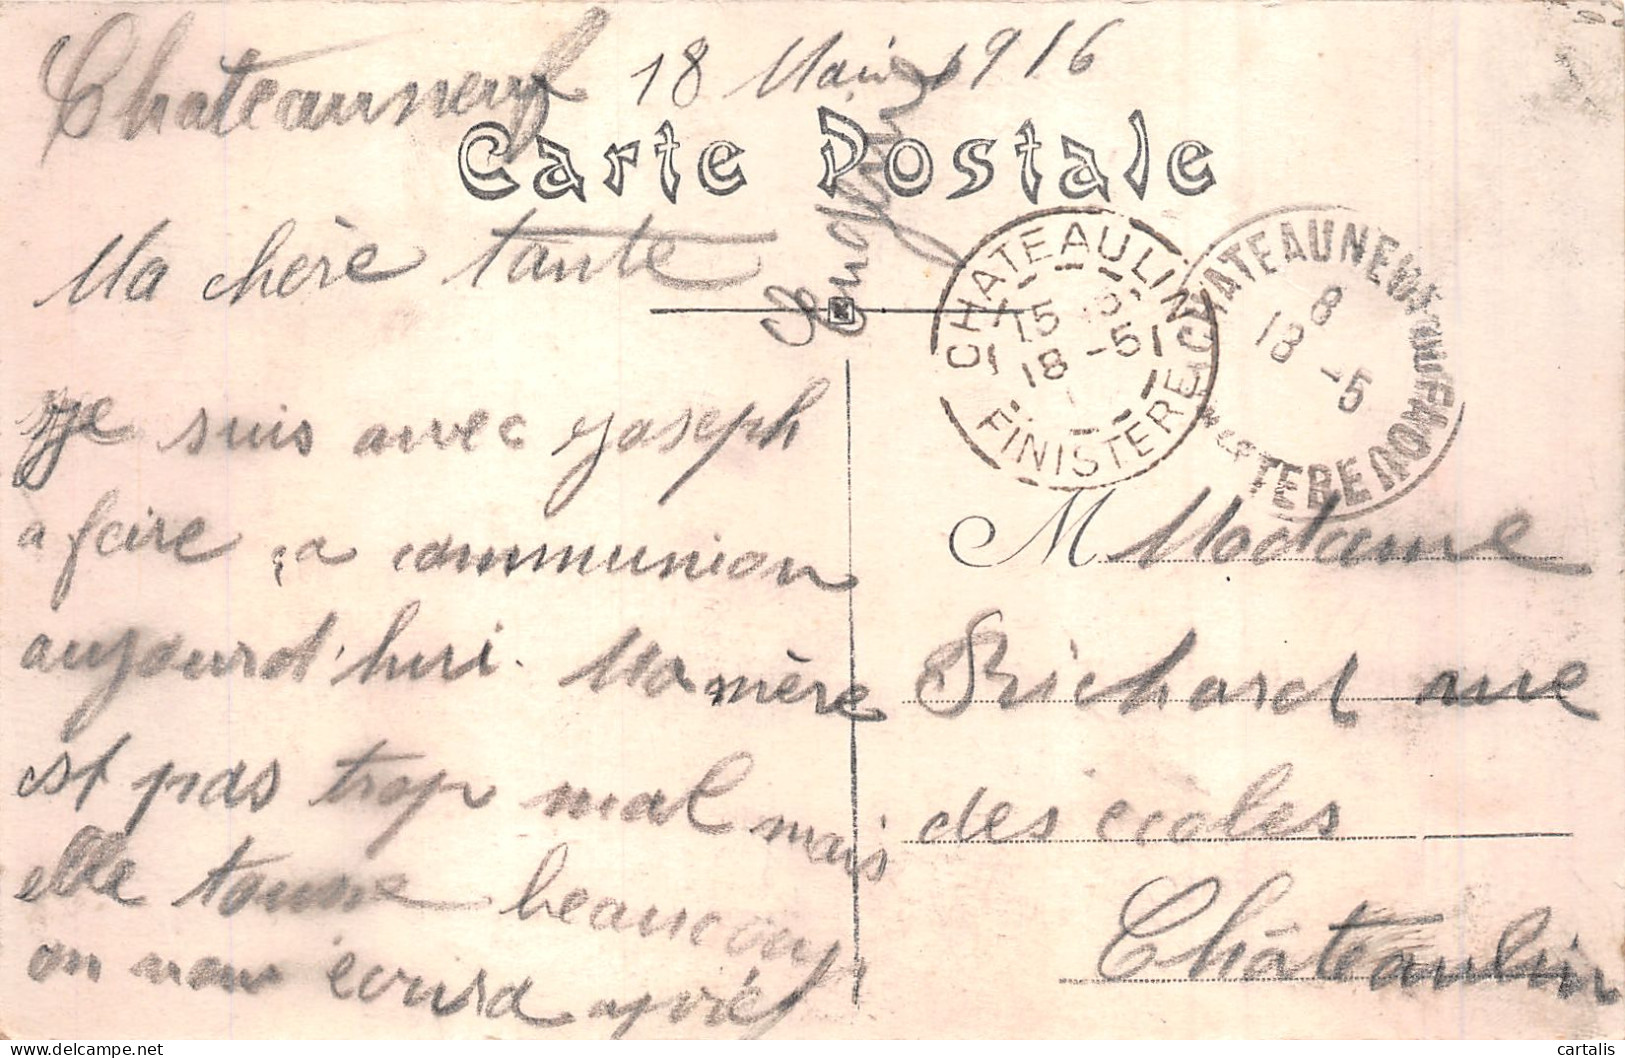 Chateauneuf 18 Mai 1916
Carte Postale
Ma chère tante
Je suis avec Joseph
a faire ça communion
aujourd'hui. Ma mère
est pas trop mal mais
elle tousse beaucoup
on vous écrira après
CHATEAULIN
15
18 -5
FINISTERE
CHATEAUNEUF-DU-FAOU
8
18 -5
M Madame
Richard rue
des écoles
Châteaulin
cartalis